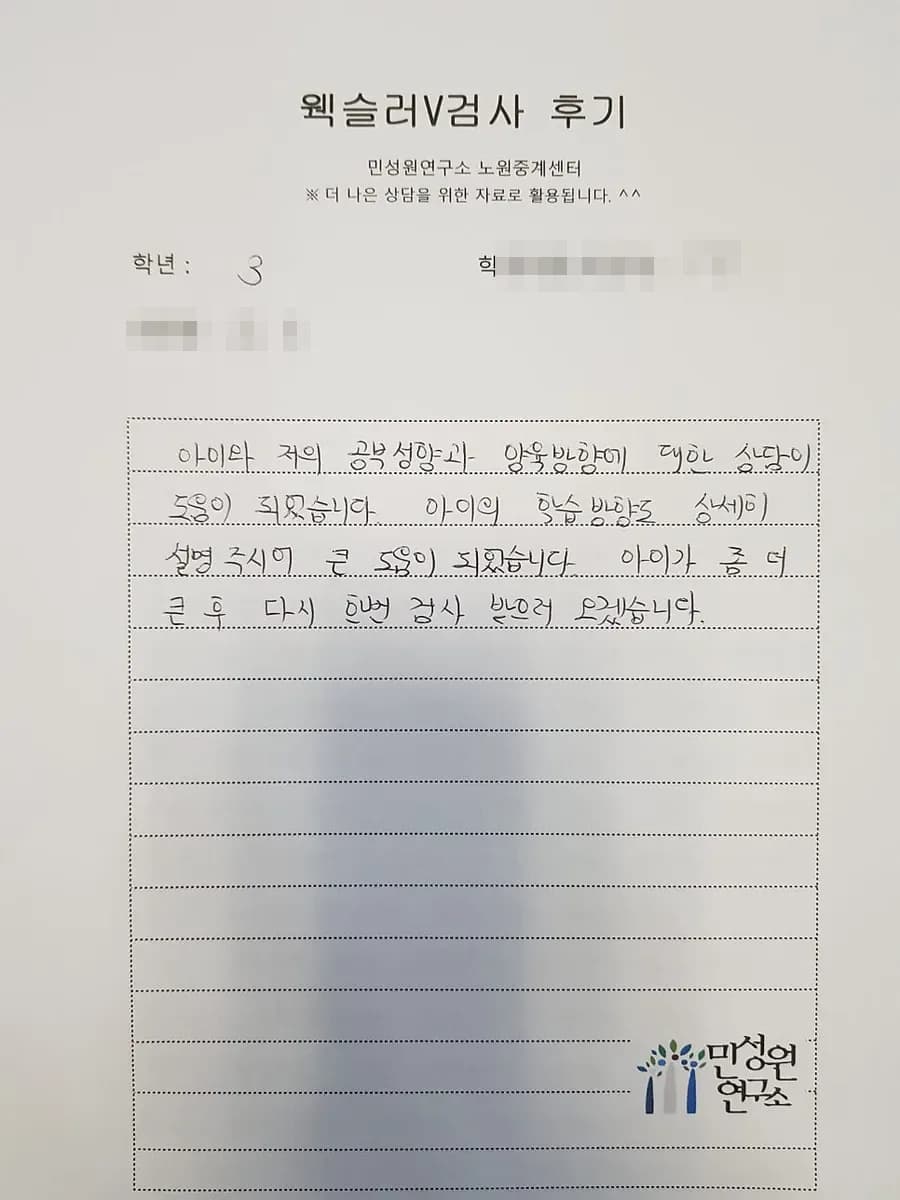 웩슬러V검사 후기
민성원연구소 노원중계센터
※ 더 나은 상담을 위한 자료로 활용됩니다. ^^
학년 : 3
아이와 저의 공부성향과 양육방향에 대한 상담이
도움이 되었습니다. 아이의 학습방향도 상세히
설명 주시어 큰 도움이 되었습니다. 아이가 좀 더
큰 후 다시 한번 검사 받으러 오겠습니다.
민성원
연구소